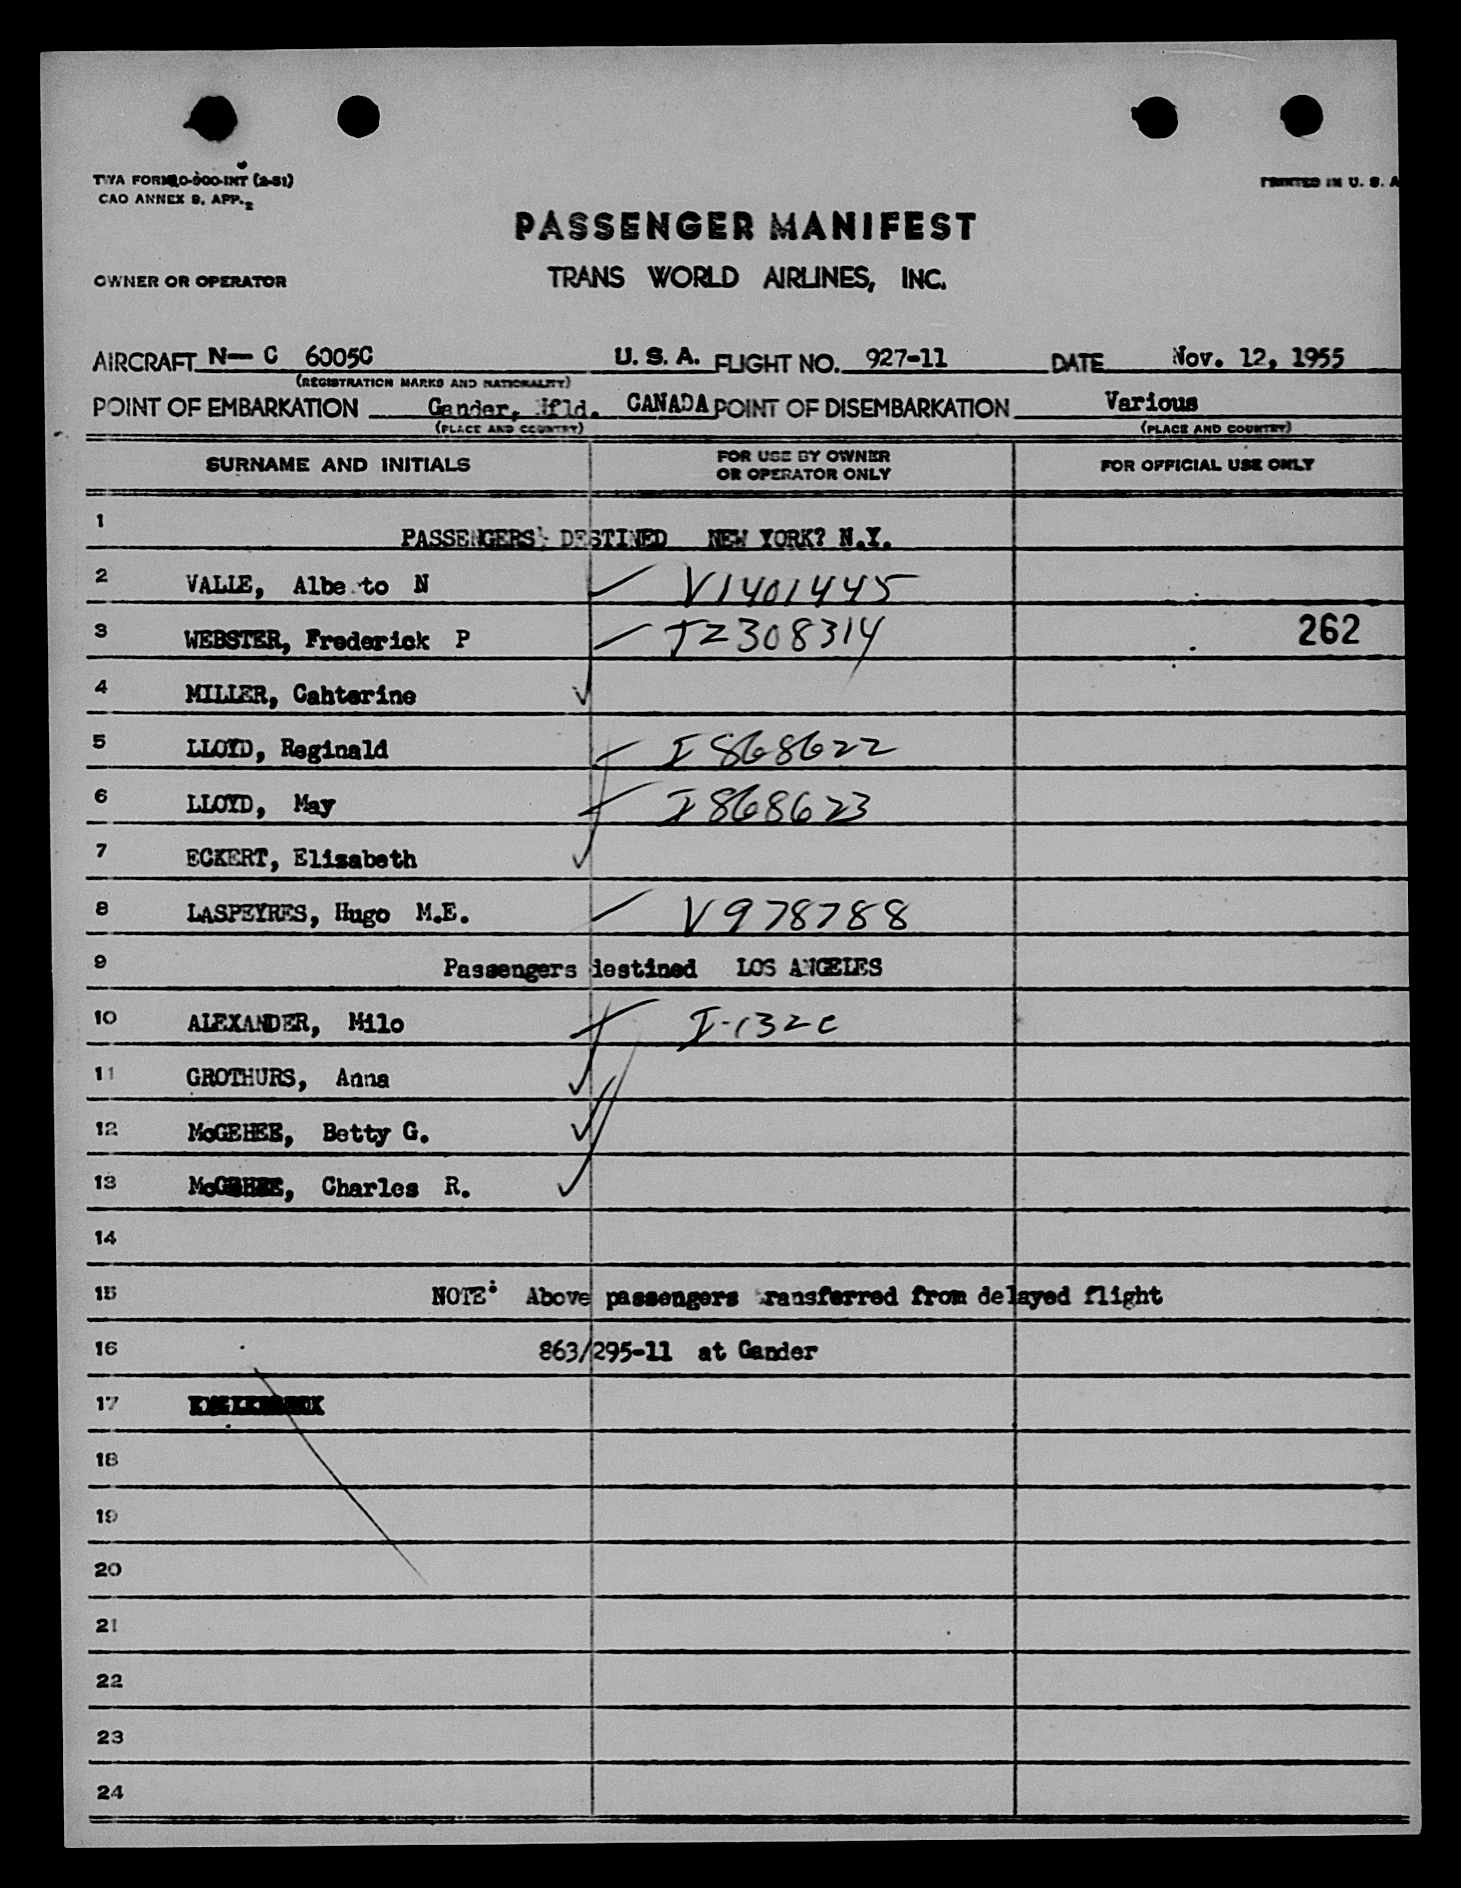 TWA FORM O-900-INT (2-51)
CAO ANNEX 9, APP. 2
PRINTED IN U. S. A
PASSENGER MANIFEST
OWNER OR OPERATOR TRANS WORLD AIRLINES, INC.
AIRCRAFT N— C 6005C U. S. A. FLIGHT NO. 927-11 DATE Nov. 12, 1955
(REGISTRATION MARKS AND NATIONALITY)
POINT OF EMBARKATION Gander, Nfld. CANADA POINT OF DISEMBARKATION Various
(PLACE AND COUNTRY) (PLACE AND COUNTRY)
SURNAME AND INITIALS FOR USE BY OWNER OR OPERATOR ONLY FOR OFFICIAL USE ONLY
1 PASSENGERS DESTINED NEW YORK? N.Y.
2 VALLE, Albe to N V1401445
3 WEBSTER, Frederick P 262
4 MILLER, Cahterine
5 LLOYD, Reginald I 868622
6 LLOYD, May I 868623
7 ECKERT, Elisabeth
8 LASPEYRES, Hugo M.E. V978788
9 Passengers destined LOS ANGELES
10 ALEXANDER, Milo
11 GROTHURS, Anna
12 McGEHEE, Betty G.
13 McGEHEE, Charles R.
14
15 NOTE: Above passengers transferred from delayed flight
16 863/295-11 at Gander
17
18
19
20
21
22
23
24